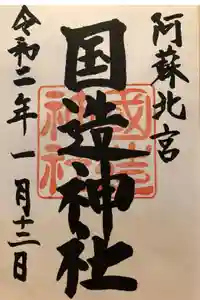 阿蘇北宮
国造神社
令和二年一月十二日
國造神社